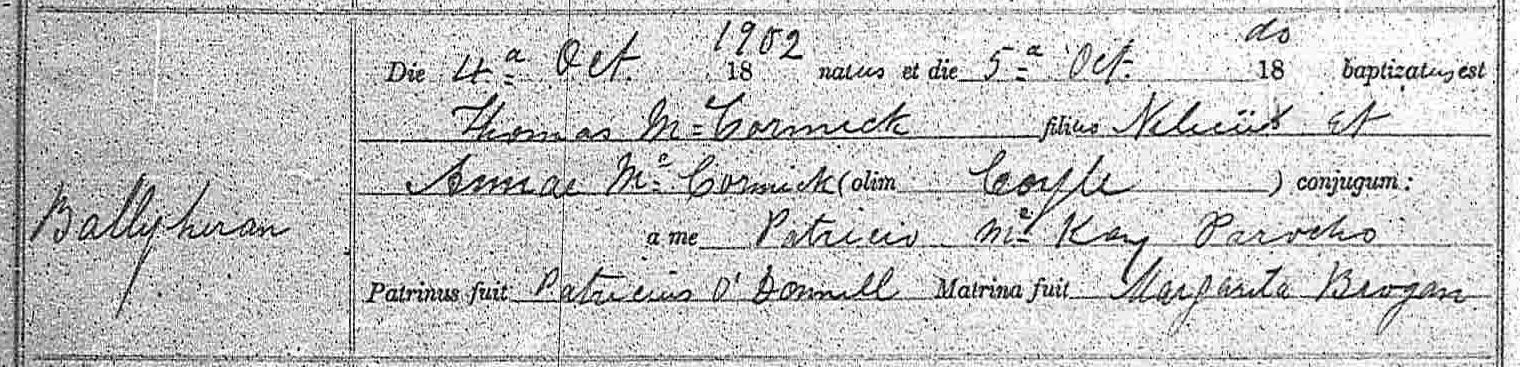 1902 do
Die 4ª Oct. 18 natus et die 5ª Oct. 18 baptizatus est
Thomas McCormick filius et
Annae McCormick (olim Coyle) conjugum:
Ballyheran
a me Patricio McKay Parocho
Patrinus fuit Patricius O'Donnell Matrina fuit Margarita Brogan